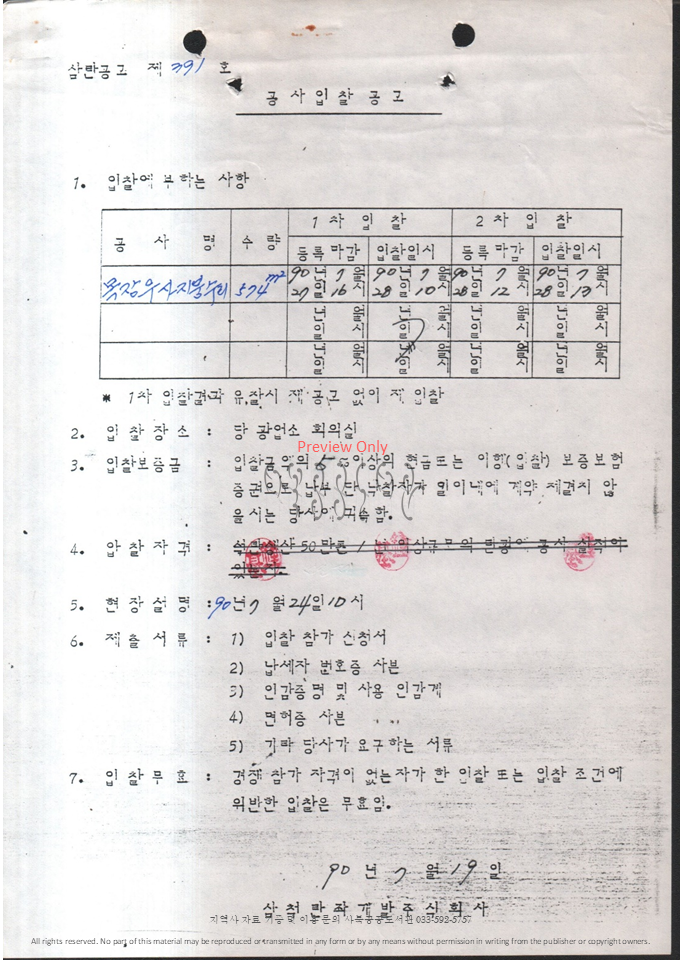 삼탄공고 제 391 호
공사입찰공고
1. 입찰에 부하는 사항
공 사 명 수 량 1 차 입 찰 2 차 입 찰
등록 마감 입찰일시 등록 마감 입찰일시
목장우사지붕수리 574 m² 90년 7월 27일 16시 90년 7월 28일 10시 90년 7월 28일 12시 90년 7월 28일 13시
년 월 일 시 년 월 일 시 년 월 일 시 년 월 일 시
년 월 일 시 년 월 일 시 년 월 일 시 년 월 일 시
* 1차 입찰결과 유찰시 재 공고 없이 재 입찰
2. 입 찰 장 소 : 당 광업소 회의실
Preview Only
3. 입찰보증금 : 입찰금액의 5 %이상의 현금또는 이행(입찰) 보증보험
증권으로 납부 단 낙찰자가 일이내에 계약 체결치 않
을시는 당사에 귀속함.
4. 입 찰 자 격 : 석탄생산 50만톤 / 년 이상규모의 탄광에 공사 실적이
있는자.
5. 현 장 설 명 : 90년 7 월 24일 10 시
6. 제 출 서 류 : 1) 입찰 참가 신청서
2) 납세자 번호증 사본
3) 인감증명 및 사용 인감계
4) 면허증 사본
5) 기타 당사가 요구하는 서류
7. 입 찰 무 효 : 경쟁 참가 자격이 없는자가 한 입찰 또는 입찰 조건에
위반한 입찰은 무효임.
90 년 7 월 19 일
삼척탄좌개발주식회사
지역사 자료 기증 및 이용 문의 사북공공도서관 033-592-5757
All rights reserved. No part of this material may be reproduced or transmitted in any form or by any means without permission in writing from the publisher or copyright owners.